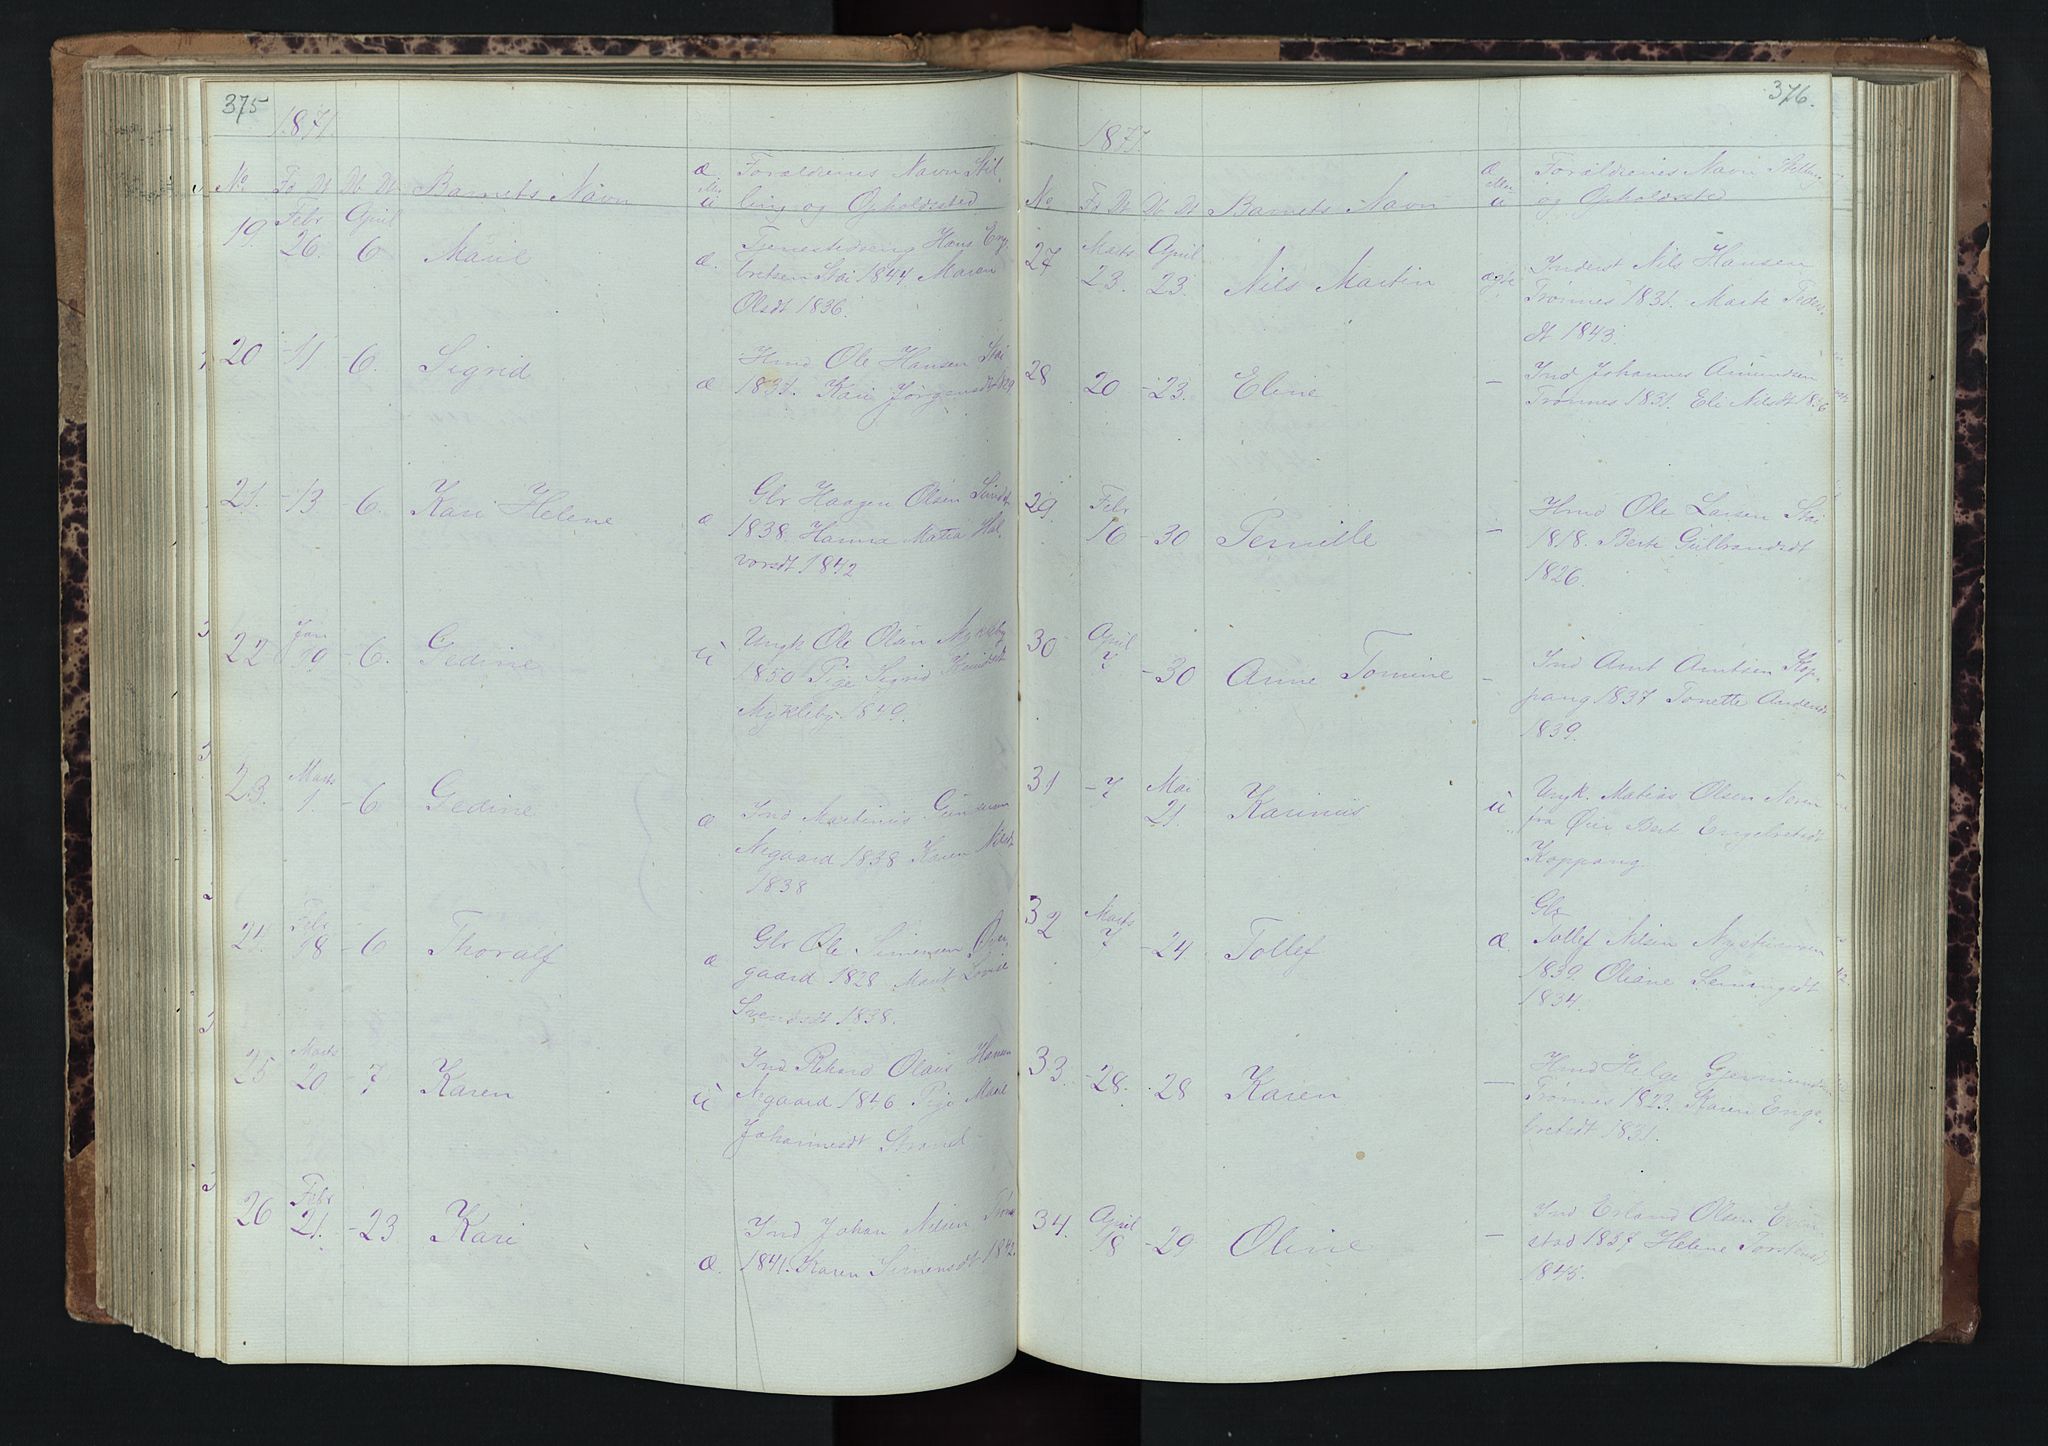 375
1871
No Fd Dt Db Dt Barnets Navn æ eller u Forældrenes Navn Stil-
ling og Opholdssted
19. Febr 26. April 6 Marie æ. Tjenestedreng Hans Eng-
bretsen Stai 1844 Maren
Olsdt 1836.
20 -11 -6. Sigrid æ Hmd Ole Hansen Stai
1837. Kari Jørgensdt 1829.
21. -13 -6. Kari Helene æ Glr Haagen Olsen
1838. Hanna Matea Hal-
vorsdt 1842
22 Jan 19 -6. Gedine u Ungk Ole Olsen Mykleby
1850 Pige Sigrid
Mykleby 1849.
23. Marts 1. -6 Gedine æ Ind Martinus
Negaard 1838 Karen Nilsdt
1838
24. Febr 18 -6 Thoralf æ Glr Ole Simensen
gaard 1828 Marit Lovise
Svendsdt 1838.
25 Marts 20. -7 Karen u Ind Rikard Olaus Hansen
Negaard 1846 Pige Marie
Johannesdt Strand
26 Febr 21. -23 Kari æ. Ind Johan Nilsen
1841. Karen Simensdt 1842.
376.
1871.
No Fd Dt Db Dt Barnets Navn æ eller u Forældrenes Navn Stilling
og Opholdssted
27 Marts 23. April 23. Nils Martin ægte Inderst Nils Hansen
Trønnes 1831. Marte Peders-
dt 1843.
28 20 -23. Eline - Ind Johannes Amundsen
Trønnes 1831. Eli Nilsdt 1836
29. Febr 16 -30 Pernille - Hmd Ole Larsen Stai
1818. Berte Gulbrandsdt
1826.
30 April 7 -30 Anne Tomine - Ind Arnt Arntsen Kop-
pang 1837 Tonette Andersdt
1839.
31 -7 Mai 21. Karinus u Ungk. Matias Olsen Noren
fra Øier Berte Engebretsdt
Koppang
32 Marts 7 -24 Tollef æ. Glr
Tollef Nilsen Nystumoen
1839. Oleane Semmingsdt
1834.
33. -28. -28 Karen - Hmd Helge Gjermundsen
Trønnes 1823. Karen Enge-
bretsdt 1831.
34. April 18 -29 Oline - Ind Erland Olsen
stad 1837 Helene Torstensdt
1845.